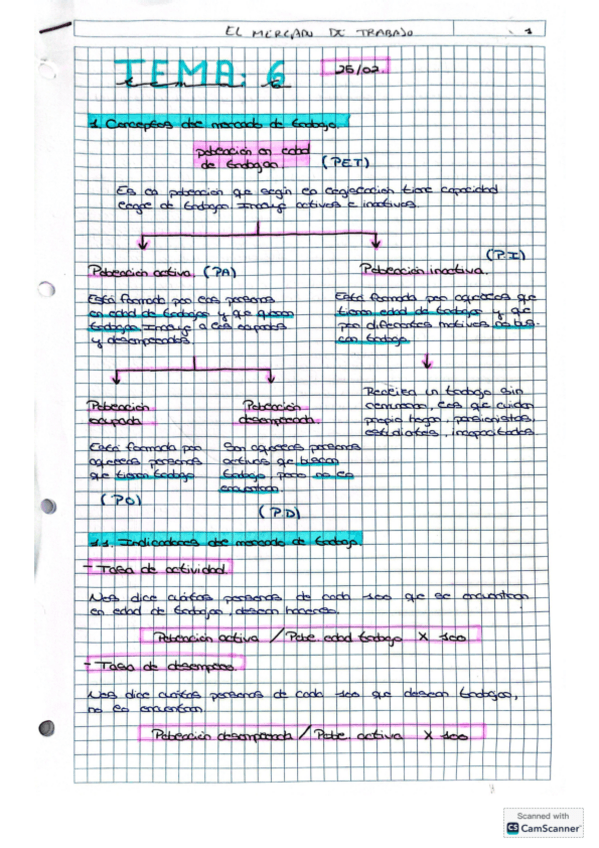 EL MERCADO DE TRABAJO 1
TEMA: 6
25/02.
1. Conceptos del mercado de trabajo.
población en edad
de trabajar. (PET)
Es la población que según la legislación tiene capacidad
legal de trabajar. Incluye activos e inactivos.
(P.I)
Población activa. (PA) Población inactiva.
Está formada por las personas
en edad de trabajar y que quieren
trabajar. Incluye a los ocupados
y desempleados.
Está formada por aquellos que
tienen edad de trabajar y que
por diferentes motivos no bus-
can trabajo.
Población
ocupada
Población
desempleada.
Realizan un trabajo sin
remunerar, los que cuidan
propio hogar, pensionistas,
estudiantes, incapacitados.
Está formada por
aquellas personas
que tienen trabajo
(PO)
Son aquellas personas
activas que buscan
trabajo, pero no lo
encuentran.
(P.D)
1.1. Indicadores del mercado de trabajo.
- Tasa de actividad.
Nos dice cuántas personas de cada 100 que se encuentran
en edad de trabajar, desean hacerlo.
Población activa / Pobl. edad trabajo X 100
- Tasa de desempleo.
Nos dice cuántas personas de cada 100 que desean trabajar,
no lo encuentran
Población desempleada / Pobl. activa X 100
Scanned with
CS CamScanner